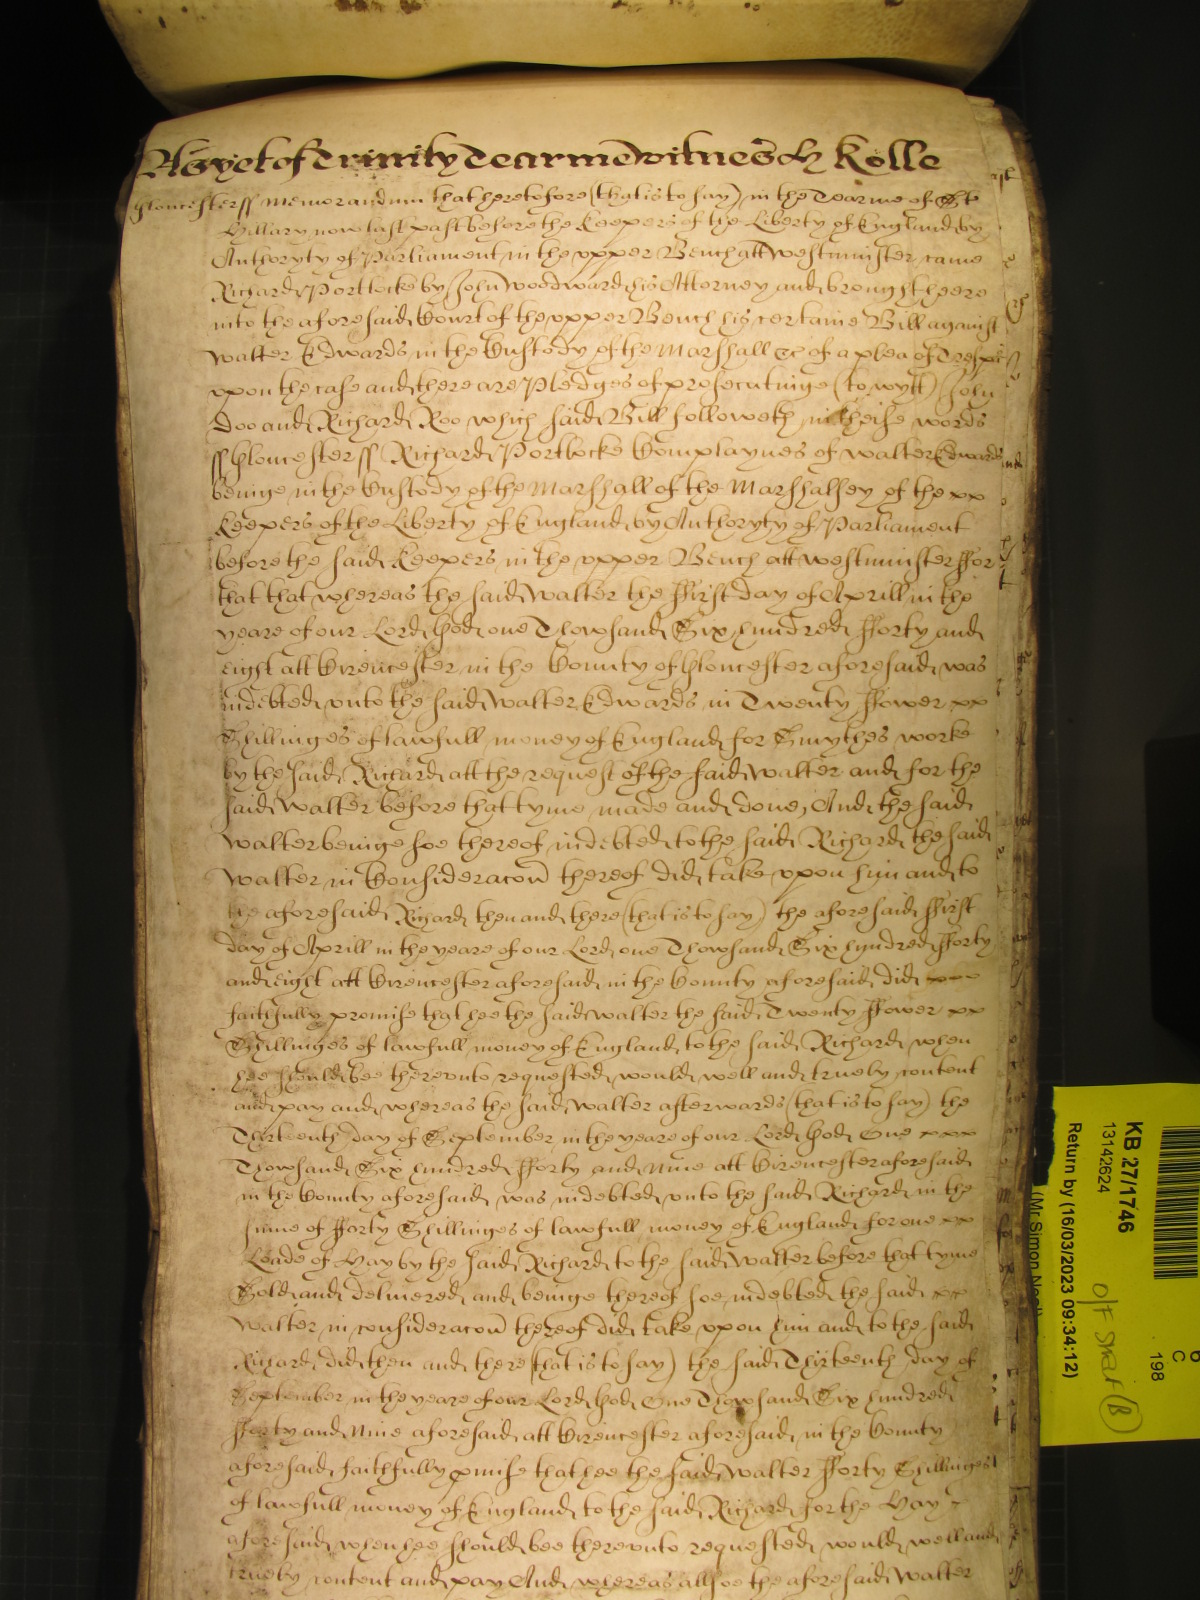 As yet of Trinity Tearme Witnes H Rolle
Gloucester ss Memorandum that heretofore (that is to say) in the Tearme of St
Hillary now last past before the Keepers of the Liberty of England by
Authoryty of Parliament in the upper Bench att Westminster came
Richard Portlocke by John Woodward his Attorney and brought heere
into the aforesaid Court of the upper Bench his certaine Bill against
Walter Edwards in the Custody of the Marshall &c of a plea of Trespas
upon the case and there are Pledges of prosecutinge (to wytt) John
Doo and Richard Roo which said Bill followeth in theise words
ss Gloucester ss Richard Portlocke Complaynes of Walter Edwards
beinge in the Custody of the Marshall of the Marshalsey of the xx
Keepers of the Liberty of England by Authoryty of Parliament
before the said Keepers in the upper Bench att Westminster ffor
that that whereas the said Walter the ffirst day of Aprill in the
yeare of our Lord God one Thowsand Six hundred fforty and
eight att Cirencester in the County of Gloucester aforesaid was
indebted unto the said Walter Edwards in Twenty ffower xx
Shillinges of lawfull money of England for Smythes worke
by the said Richard att the request of the said Walter and for the
said Walter before that tyme made and done, And the said
Walter beinge soe thereof indebted to the said Richard the said
Walter in Consideracon thereof did take upon him and to
the aforesaid Richard then and there (that is to say) the aforesaid ffirst
day of Aprill in the yeare of our Lord one Thowsand Six hundred fforty
and eight att Cirencester aforesaid in the County aforesaid did xxx
faithfully promise that hee the said Walter the said Twenty ffower xx
Shillinges of lawfull money of England to the said Richard when
hee should bee thereunto requested would well and truely content
and pay and whereas the said Walter afterwards (that is to say) the
Thirteenth day of September in the yeare of our Lord God One xxx
Thowsand Six hundred fforty and Nine att Cirencester aforesaid
in the County aforesaid was indebted unto the said Richard in the
sume of fforty Shillinges of lawfull money of England for one xx
Loade of Hay by the said Richard to the said Walter before that tyme
Sold and delivered and beinge thereof soe indebted the said xx
Walter in consideracon thereof did take upon him and to the said
Richard did then and there (that is to say) the said Thirteenth day of
September in the yeare of our Lord God One Thowsand Six hundred
fforty and Nine aforesaid att Cirencester aforesaid in the County
aforesaid faithfully pmise that hee the said Walter fforty Shillinges
of lawfull money of England to the said Richard for the Hay
aforesaid when hee should bee thereunto requested would well and
truely content and pay And whereas allsoe the aforesaid Walter
KB 27/1746
13142624
Return by (16/03/2023 09:34:12)
C
198
O/F Strat (B)